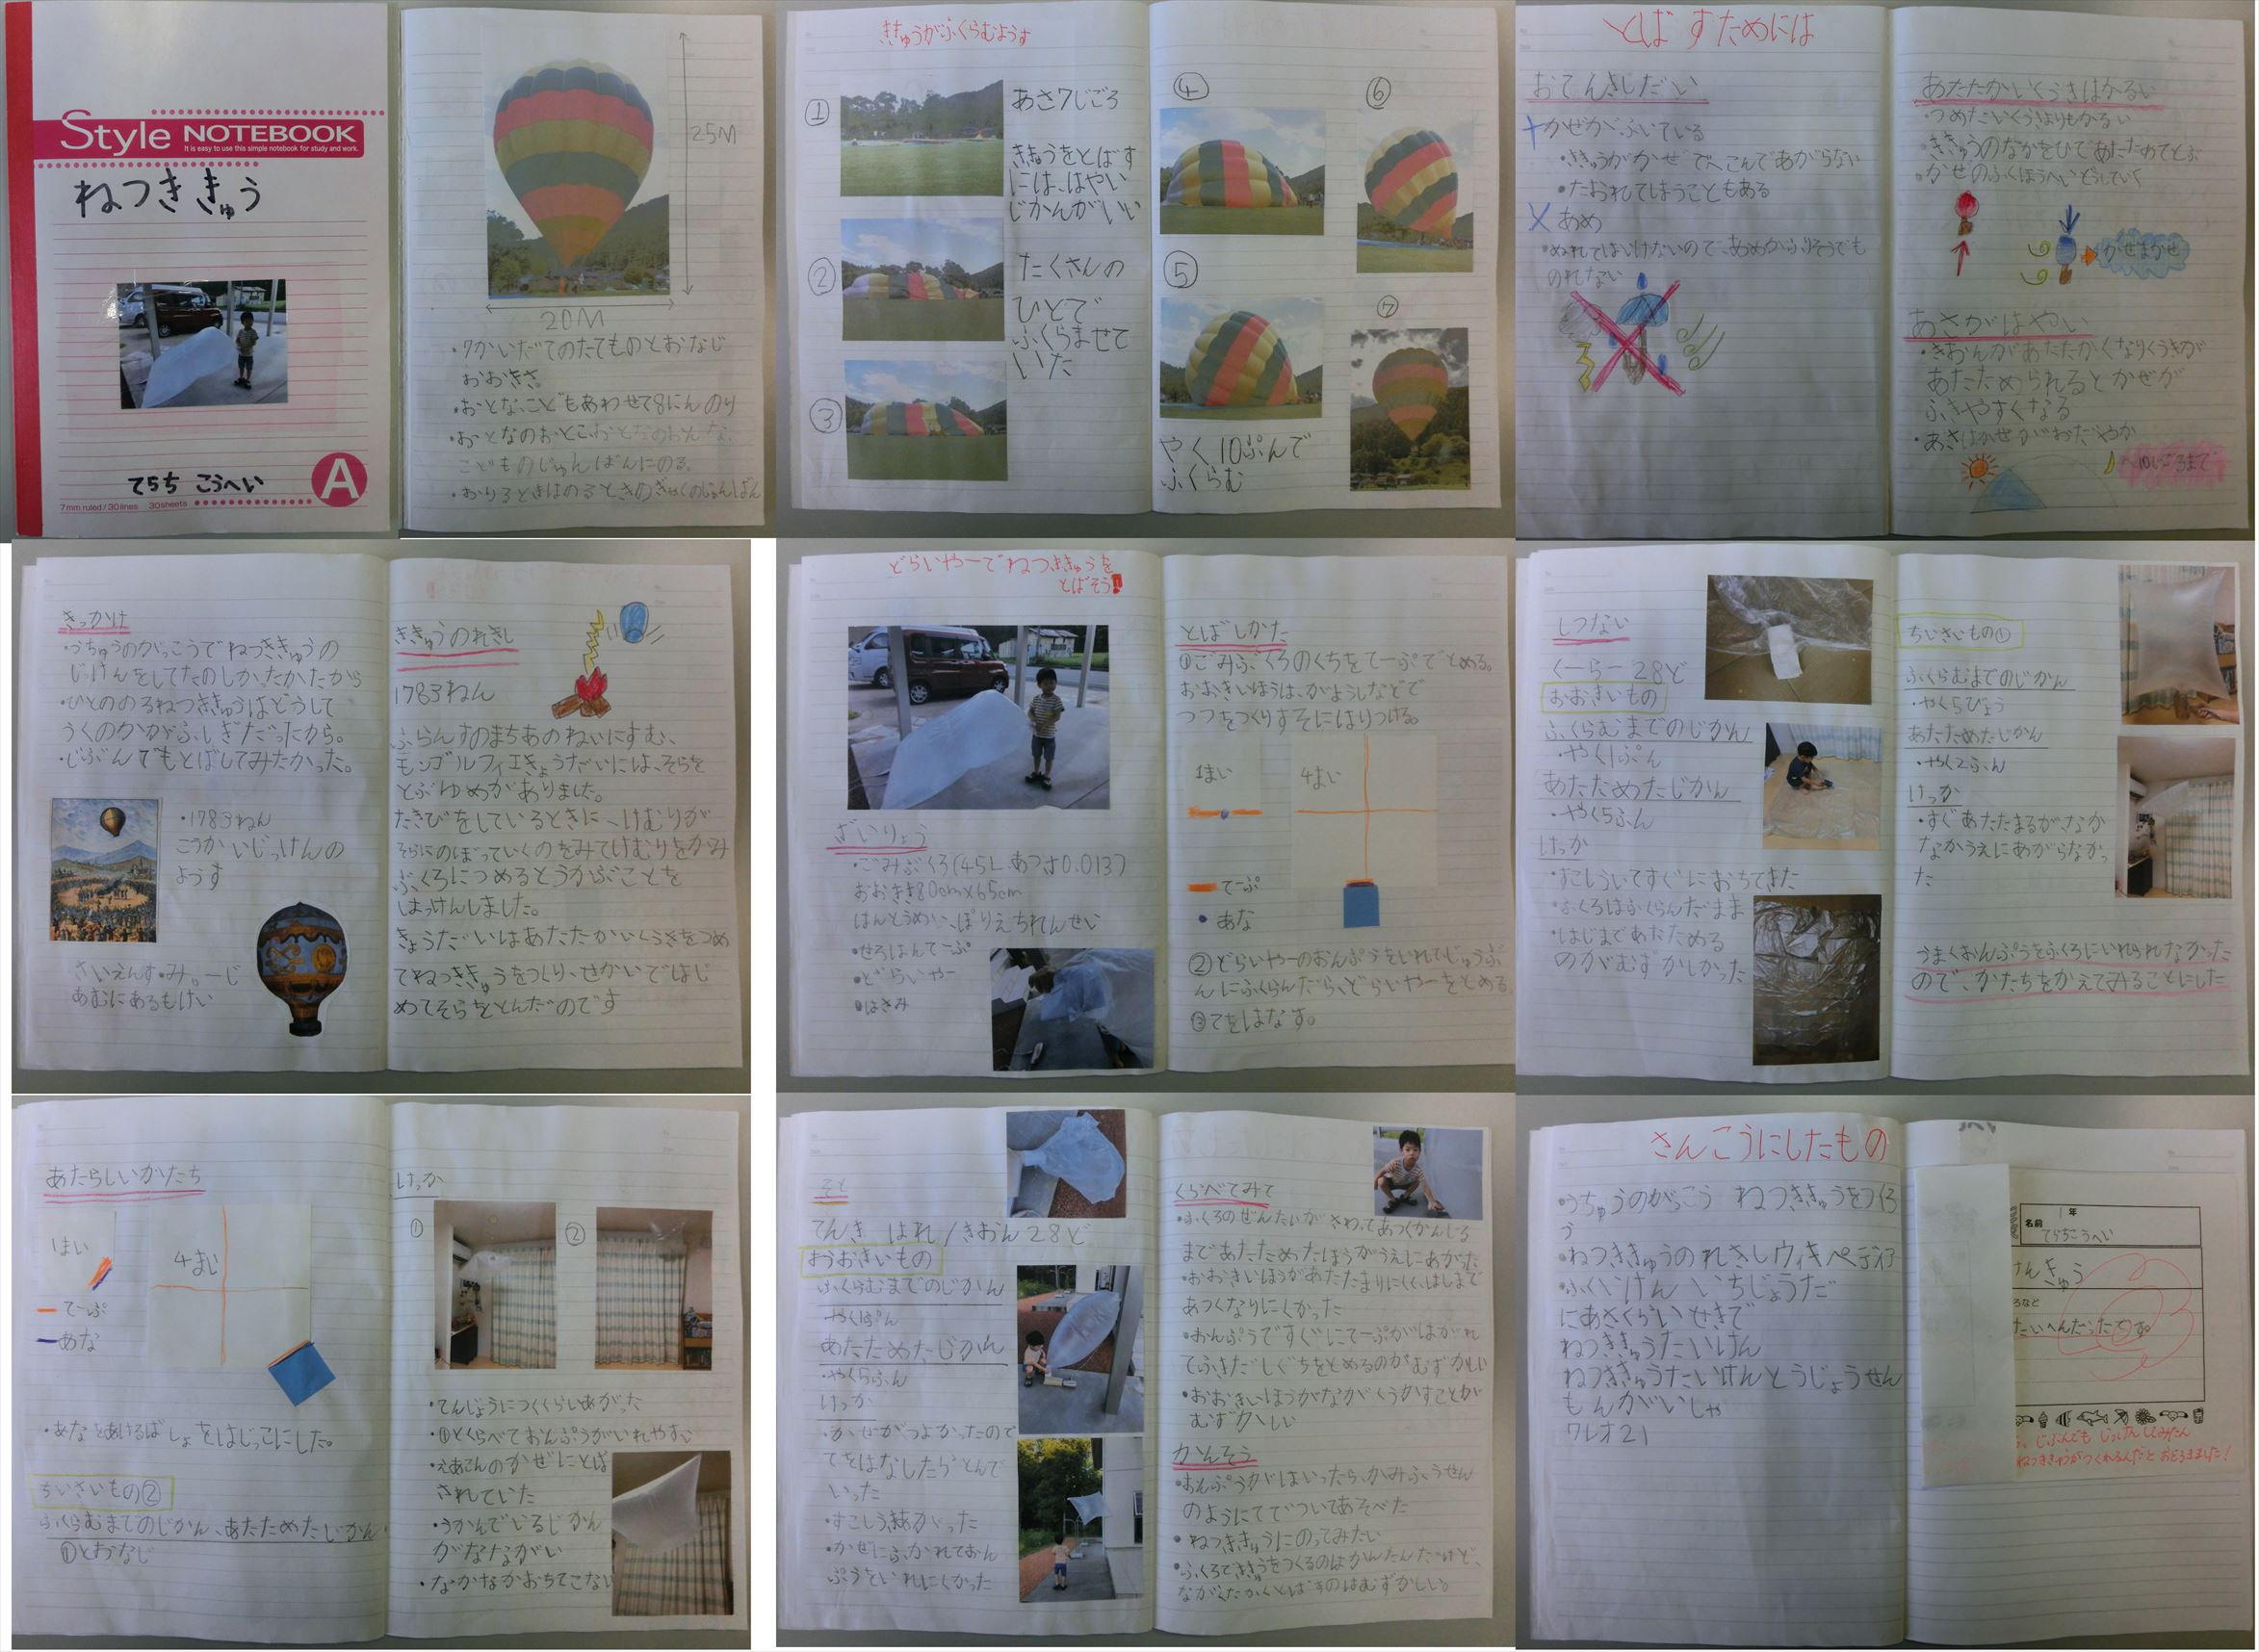 Style NOTEBOOK
It is easy to use this simple notebook for study and work.
ねつききゅう
てらち こうへい
A
7mm ruled / 30 lines 30 sheets
25M
20M
・7かいだてのたてものとおなじ
おおきさ。
・おとな、こどもあわせて8にんのり
・おとなのおとこ、おとなのおんな、
こどものじゅんばんにのる。
・おりるときはのるときのぎゃくのじゅんばん
ききゅうがふくらむようす
①
あさ7じごろ
ききゅうをとばす
には、はやい
じかんがいい
②
たくさんの
ひとで
ふくらませて
いた
③
④
⑤
やく10ぷんで
ふくらむ
⑥
⑦
とばすためには
おてんきしだい
かぜがふいている
・ききゅうがかぜでへこんであがらない
・たおれてしまうこともある
X あめ
・ぬれてはいけないので、あめがふりそうでも
のれない
あたたかいくうきはかるい
・つめたいくうきよりもかるい
・ききゅうのなかをひであたためてとぶ
・かぜのふくほうへいどうしていく
かぜまかせ
あさがはやい
・きおんがあたたかくなりくうきが
あたためられるとかぜが
ふきやすくなる
・あさはかぜがおだやか
10じごろまで
きっかけ
・うちゅうのがっこうでねつききゅうの
じっけんをしてたのしかったから
・ひとののるねつききゅうはどうして
うくのかがふしぎだったから。
・じぶんでもとばしてみたかった。
・1783ねん
こうかいじっけんの
ようす
さいえんす・みゅーじ
あむにあるもけい
ききゅうのれきし
1783ねん
ふらんすのまちあのねいにすむ、
モンゴルフィエきょうだいには、そらを
とぶゆめがありました。
たきびをしているときに、けむりが
そらにのぼっていくのをみてけむりをかみ
ぶくろにつめるとうかぶことを
はっけんしました。
きょうだいはあたたかいくうきをつめ
てねつききゅうをつくり、せかいではじ
めてそらをとんだのです
どらいやーでねつききゅうを
とばそう!
ざいりょう
・ごみぶくろ(45L、あつさ0.013)
おおきさ80cm×65cm
はんとうめい、ぽりえちれんせい
・せろはんてーぷ
・どらいやー
・はさみ
とばしかた
①ごみぶくろのくちをてーぷでとめる。
おおきいほうは、がようしなどで
つつをつくりすそにはりつける。
1まい
4まい
てーぷ
・あな
②どらいやーのおんぷうをいれてじゅうぶ
んにふくらんだら、どらいやーをとめる。
③てをはなす。
しつない
くーらー28ど
おおきいもの
ふくらむまでのじかん
・やく1ぷん
あたためたじかん
・やく5ふん
けっか
・すこしういてすぐにおちてきた
・ふくろはふくらんだまま
・はじまであたためる
のがむずかしかった
ちいさいもの①
ふくらむまでのじかん
・やく5びょう
あたためたじかん
・やく2ふん
けっか
・すぐあたたまるが、なか
なかうえにあがらなかっ
た
うまくおんぷうをふくろにいれられなかった
ので、かたちをかえてみることにした
あたらしいかたち
1まい
4まい
てーぷ
あな
・あなをあけるばしょをはじっこにした。
ちいさいもの②
ふくらむまでのじかん、あたためたじかん
①とおなじ
けっか
①
②
・てんじょうにつくくらいあがった
・①とくらべておんぷうがいれやすい
・えあこんのかぜにとば
されていた
・うかんでいるじかん
がながい
・なかなかおちてこない
そと
てんき はれ/きおん28ど
おおきいもの
ふくらむまでのじかん
・やく1ぷん
あたためたじかん
・やく5ふん
けっか
・かぜがつよかったので
てをはなしたらとんで
いった
・すこしうきあがった
・かぜにふかれておん
ぷうをいれにくかった
くらべてみて
・ふくろのぜんたいがさわってあつくかんじる
まであたためたほうがうえにあがった
・おおきいほうがあたたまりにくく、はしまで
あつくなりにくかった
・おんぷうですぐにてーぷがはがれ
てふきだしぐちをとめるのがむずかしい
・おおきいほうがながくうかすことが
むずかしい
かんそう
・おんぷうがはいったら、かみふうせん
のようにてでついてあそべた
・ねつききゅうにのってみたい
・ふくろでききゅうをつくるのはかんたんだけど、
ながくたかくとばすのはむずかしい。
さんこうにしたもの
・うちゅうのがっこう ねつききゅうをつくろ
う
・ねつききゅうのれきしウィキペディア
・ふくいけん いちじょうだ
にあさくらいせきで
ねつききゅうたいけん
ねつききゅうたいけんとうじょうせん
もんがいしゃ
ワレオ21
1年
名前
てらちこうへい
けんきゅう
たいへんだったです。
じぶんでも じっけんしてみたん
ねつききゅうがつくれるんだと おどろきました!